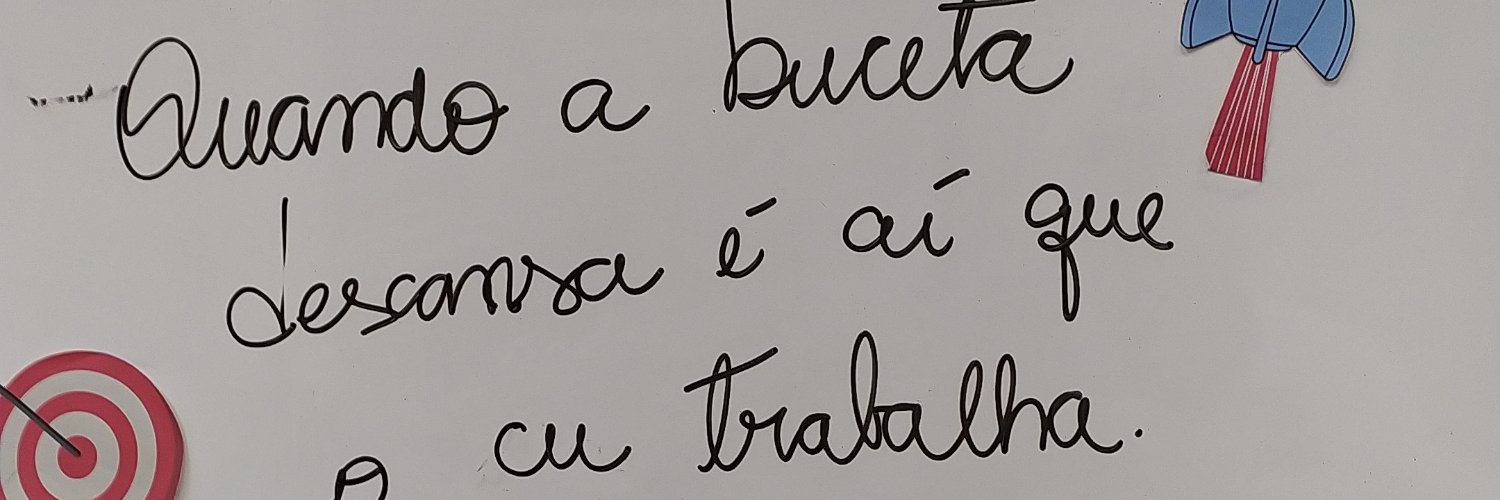 Quando a buceta
descansa é aí que
o cu trabalha.